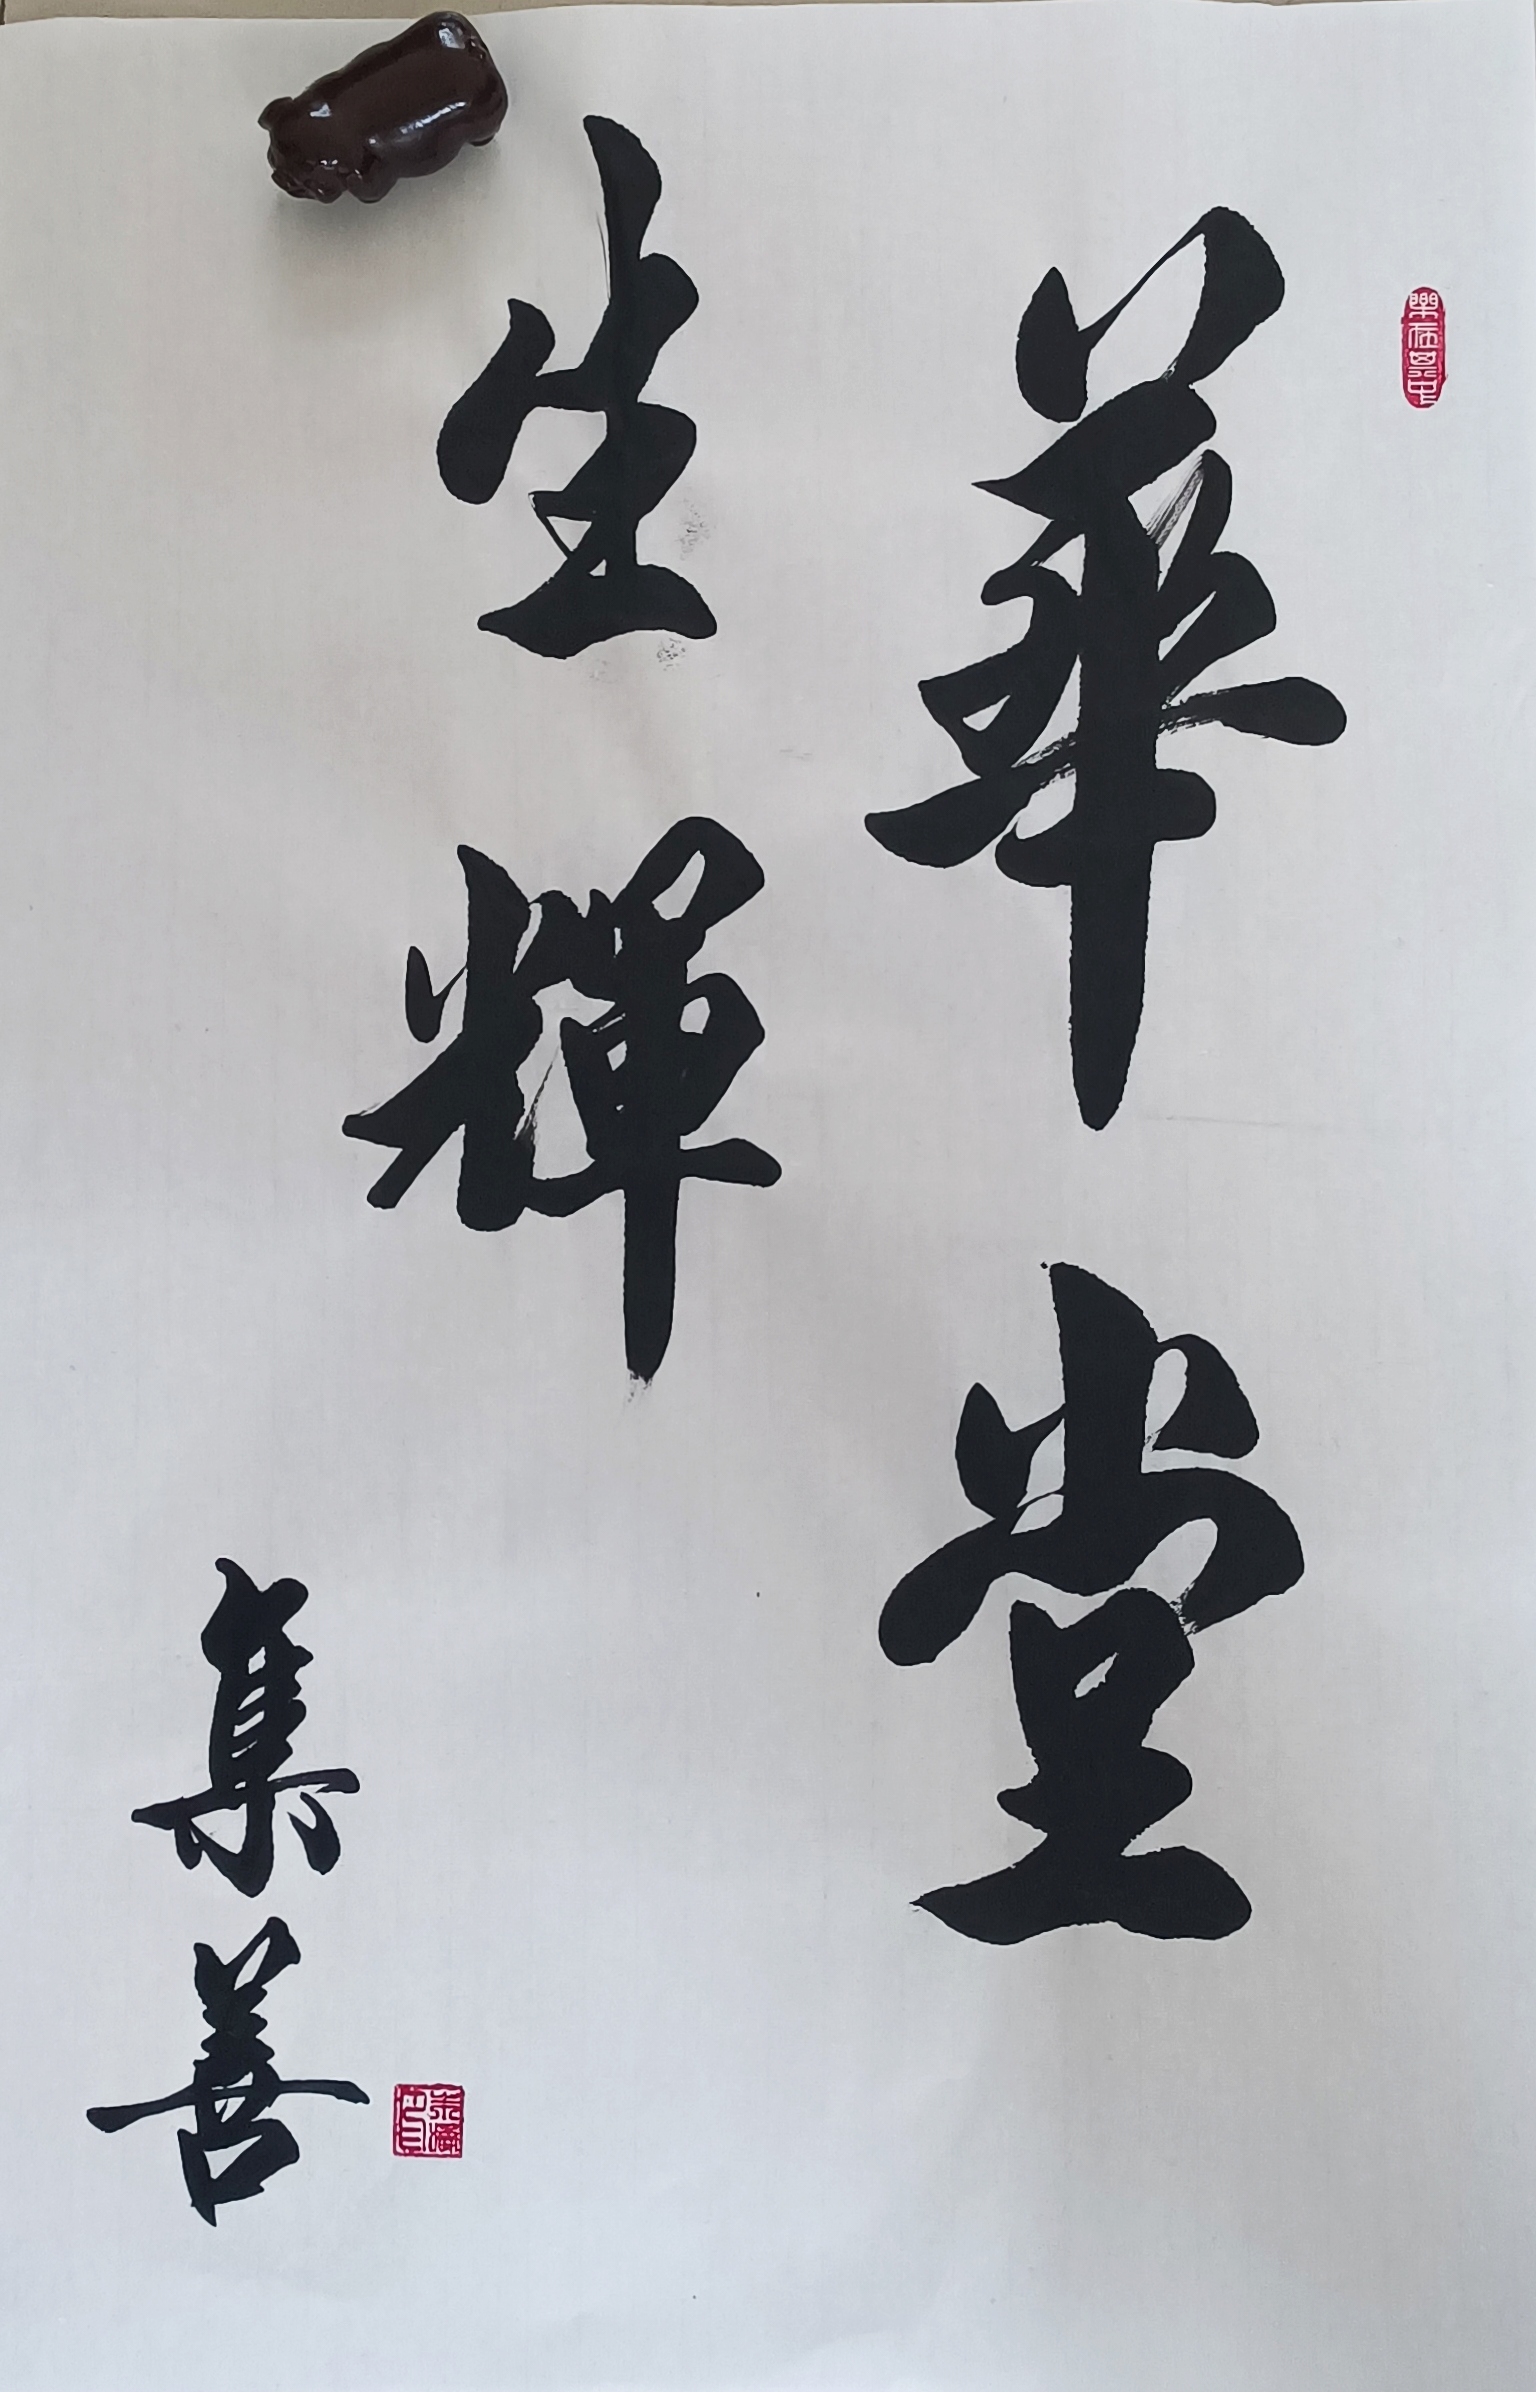 華堂
生輝
集善